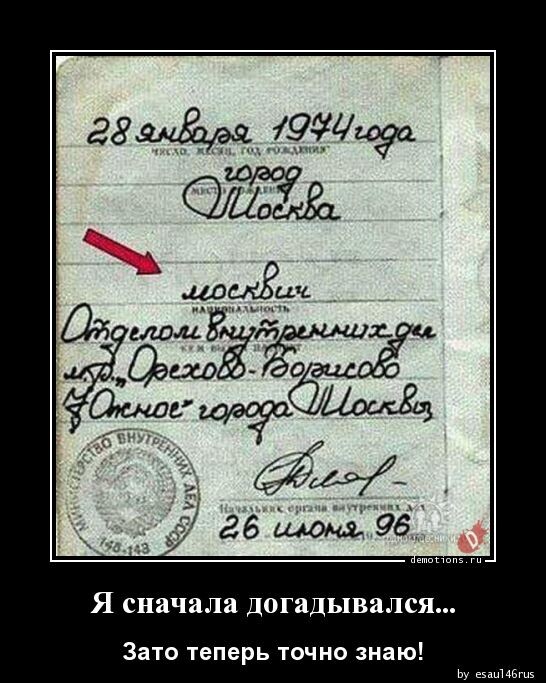 28 января 1974 года
ЧИСЛО, МЕСЯЦ, ГОД РОЖДЕНИЯ
город
МЕСТО РОЖДЕНИЯ
Москва
москвич
НАЦИОНАЛЬНОСТЬ
Отделом внутренних дел
КЕМ ВЫДАН ПАСПОРТ
м/р. „Орехово-Борисово
Южное" города Москвы
МИНИСТЕРСТВО ВНУТРЕННИХ ДЕЛ СССР
148-143
Начальник органа внутренних дел
26 июня 96
demotions.ru
Я сначала догадывался...
Зато теперь точно знаю!
by esaul46rus